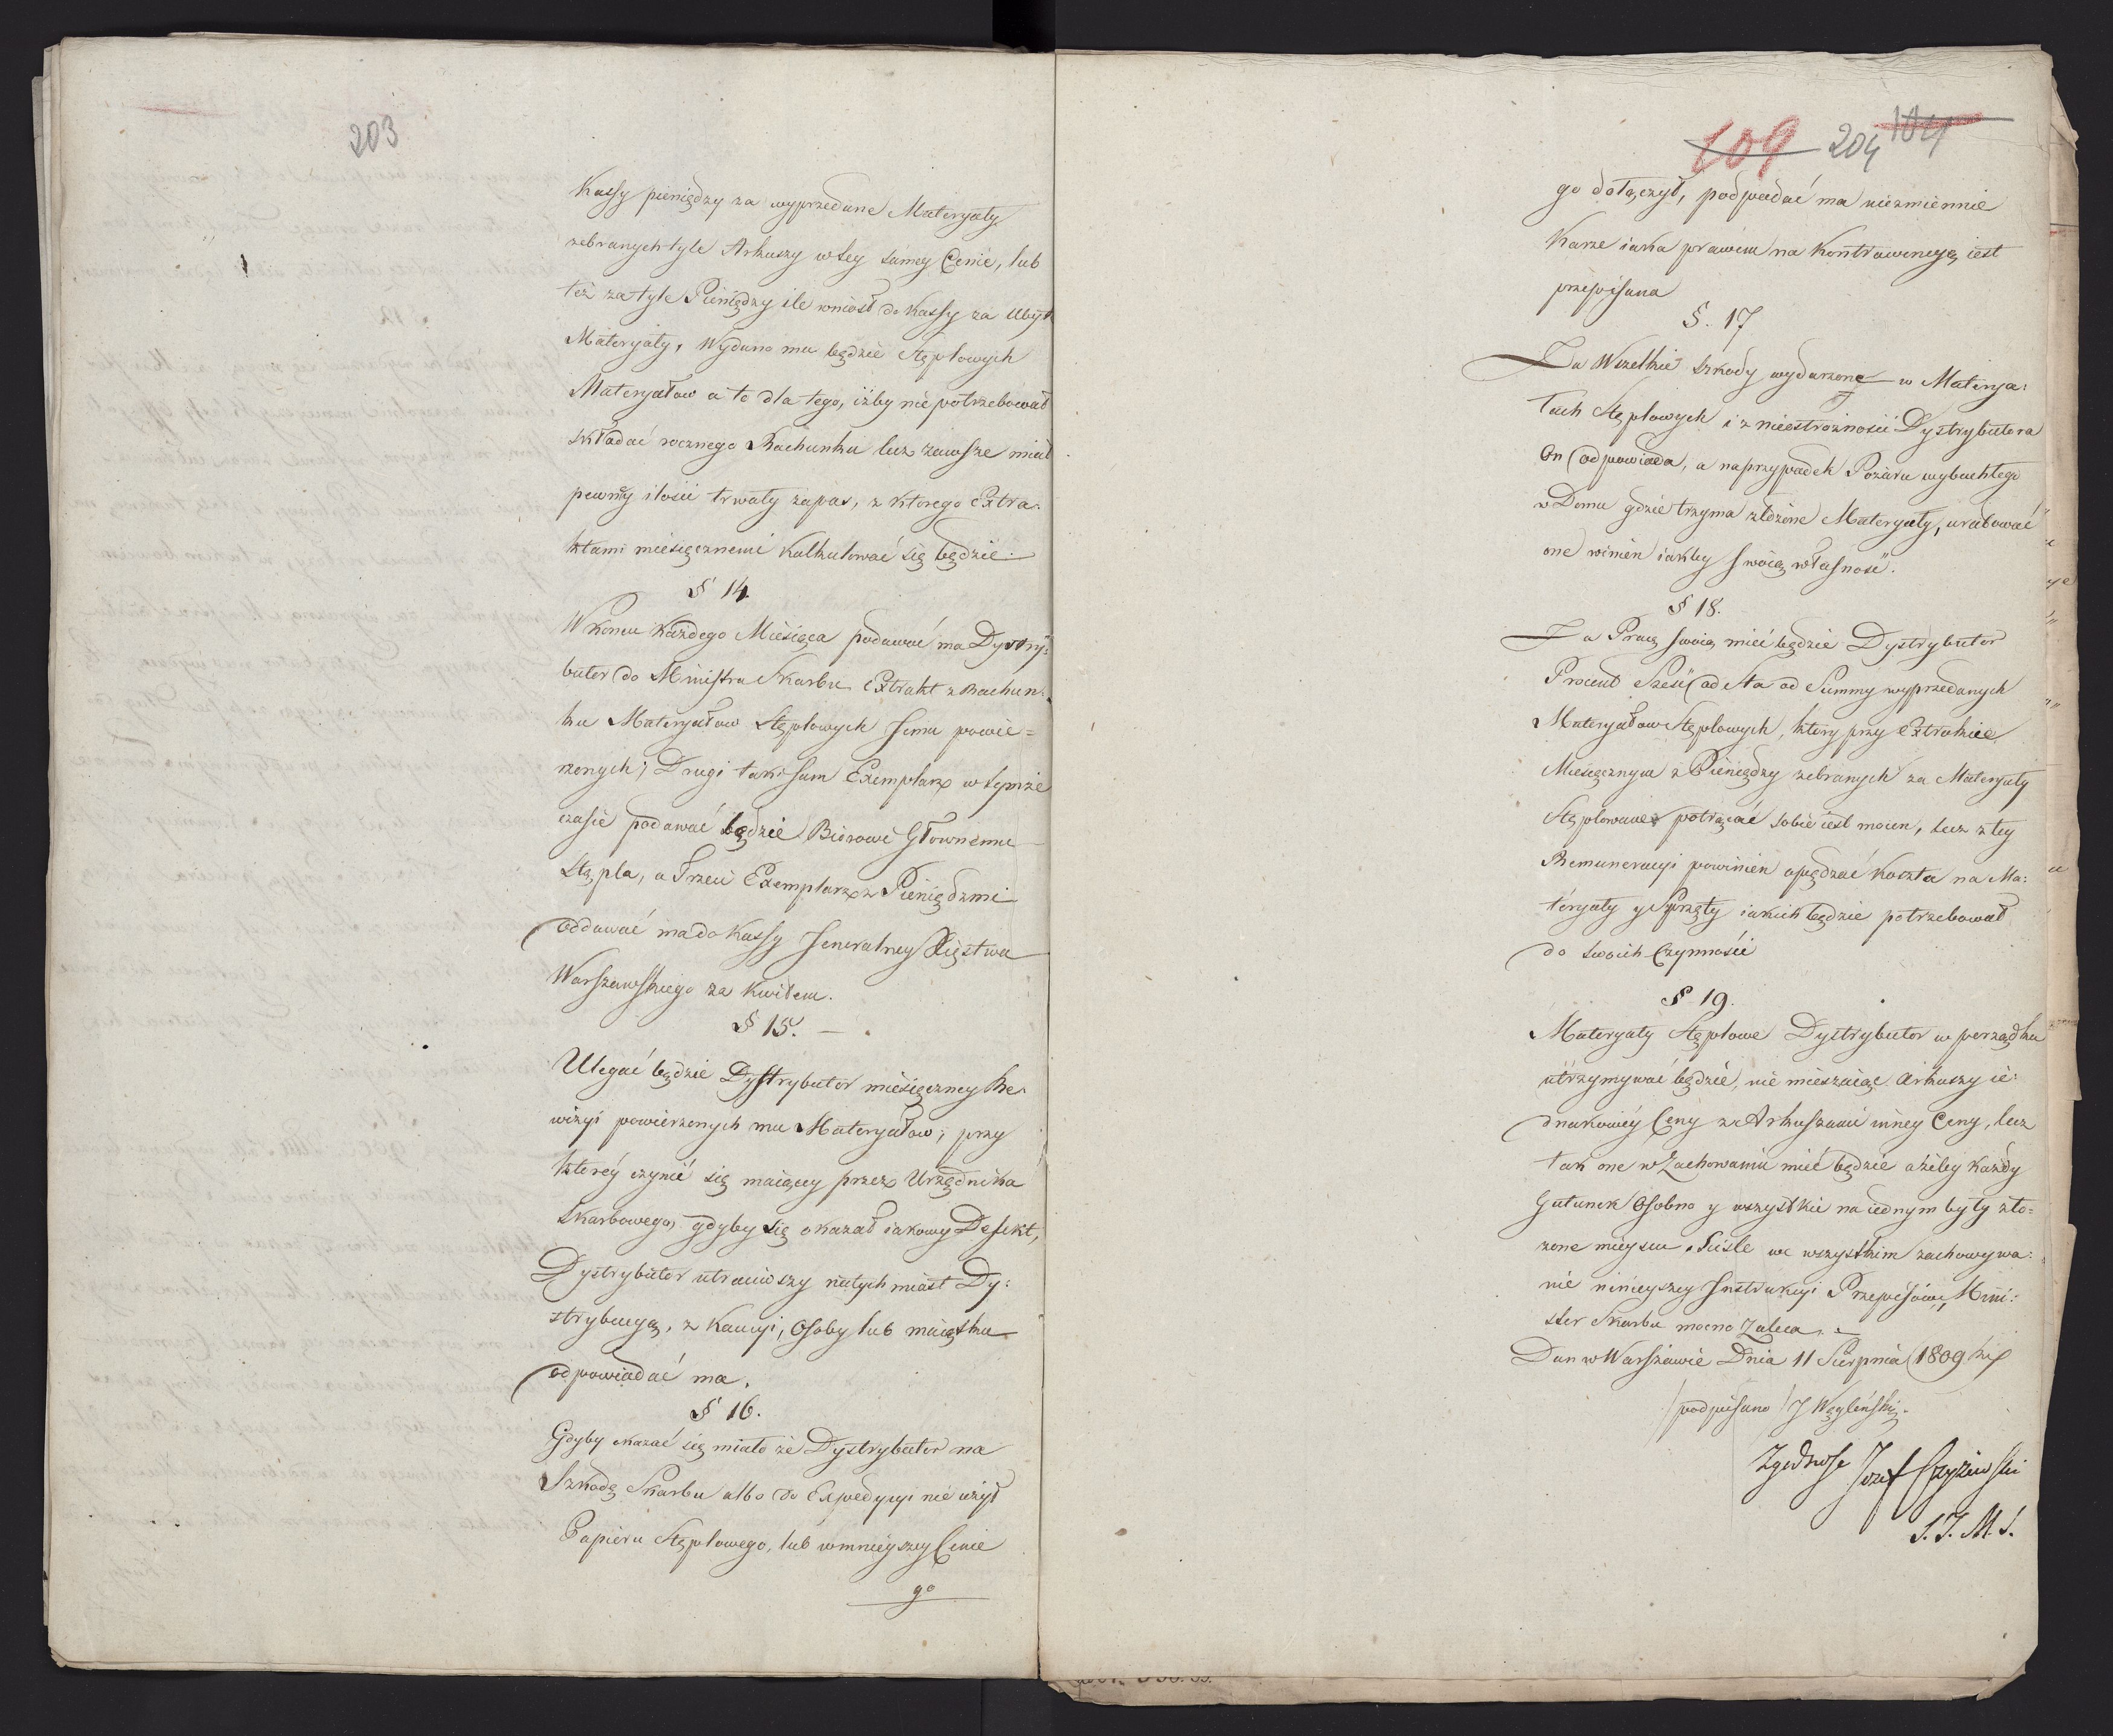 203
Kassy pieniędzy za wyprzedane Materyały
zebranych tyle Arkuszy w tey samey Cenie, lub
też za tyle Pieniędzy ile wniosł do Kassy za Ubyt
Materyały, Wydano mu będzie Stęplowych
Materyałow a to dla tego, iżby nie potrzebował
składać rocznego Rachunku lecz zawsze miał
pewney ilości trwały zapas, z ktorego Extra:
ktami miesięcznemi Kalkulować się będzie.
§ 14.
W Koncu Każdego Miesiąca podawać ma Dystry:
butor do Ministra Skarbu Extrakt z Rachun:
ku Materyałow Stęplowych Jemu powie=
rzonych; Drugi taki sam Exemplarz w tymże
czasie podawać będzie Biorowi Głownemu
Stępla, a Trzeci Exemplarz z Pieniędzmi
oddawać ma do Kassy Jeneralney Xięstwa
Warszawskiego za Kwitem.
§ 15.
Ulegać będzie Dystrybutor miesięczney Re:
wizyi powierzonych mu Materyałow, przy
ktorey czynić się maiącey przez Urzędnika
Skarbowego, gdyby się okazał iakowy Defekt,
Dystrybutor utraciwszy natychmiast Dy:
strybucyą, z Kaucyi, Osoby lub maiątku
odpowiadać ma.
§ 16.
Gdyby okazać się miało że Dystrybutor na
Szkodę Skarbu albo do Expedycyi nie użył
Papieru Stęplowego, lub w mnieyszey Cenie
go
109 204 104
go dołączył, podpadać ma niezmiennie
Karze iaka prawem na Kontrawencyą iest
przepisana
§. 17
Za Wszelkie szkody wydarzone w Materya:
łach Stęplowych i z nieostrożności Dystrybutora
On odpowiada, a na przypadek Pożaru wybuchłego
w Domu gdzie trzyma złożone Materyały, uratować
one winien iakby swoią własność.
§ 18.
Za Pracę swoią mieć będzie Dystrybutor
Procent Sześć od Sta od Summy wyprzedanych
Materyałow Stęplowych, ktory przy Extrakcie
Miesięcznym z Pieniędzy zebranych za Materyały
Stęplowane potrącać sobie iest mocen, lecz z tey
Remuneracyi powinien opędzać Koszta na Ma:
teryały y Sprzęty iakich będzie potrzebował
do swoich Czynności
§ 19.
Materyały Stęplowe Dystrybutor w porządku
utrzymywać będzie, nie mieszaiąc Arkuszy ie:
dnakowey Ceny z Arkuszami inney Ceny, lecz
tak one w Zachowaniu mieć będzie ażeby każdy
Gatunek Osobno y wszystkie na iednym były zło:
zone mieyscu. Scisle we wszystkim zachowywa:
nie ninieyszey Instrukcyi Przepisow, Mini:
ster Skarbu mocno Zaleca.
Dan w Warszawie Dnia 11 Sierpnia 1809
/podpisano/ J Węgleński.
Zgodność Jozef Czyżewski
S. J. M. S.